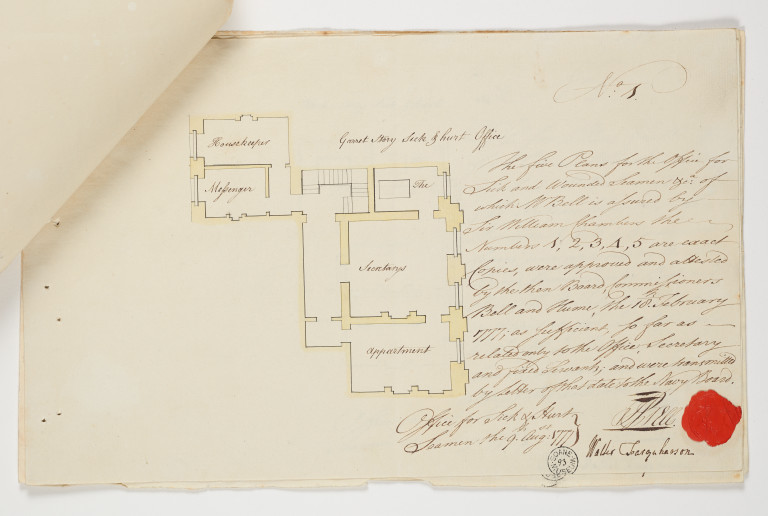 No. 1.
Garret Story Sick & hurt Office
Housekeeper
Messenger
The
Secretarys
appartment
The five Plans for the Office for
Sick and Wounded Seamen &c. of
which Mr. Bell is assured by
Sir William Chambers the
Numbers 1, 2, 3, 4, 5 are exact
Copies, were approved and attested
by the then Board, Commissioners
Bell and Hume, the 18th February
1777, as sufficient, so far as
related only to the Office, Secretary
and fixed Servants, and were transmitted
by letter of that date to the Navy Board.
Office for Sick & Hurt
Seamen the 9th Augt. 177
Bell
Walter Farquharson
SOANE
MUSEUM